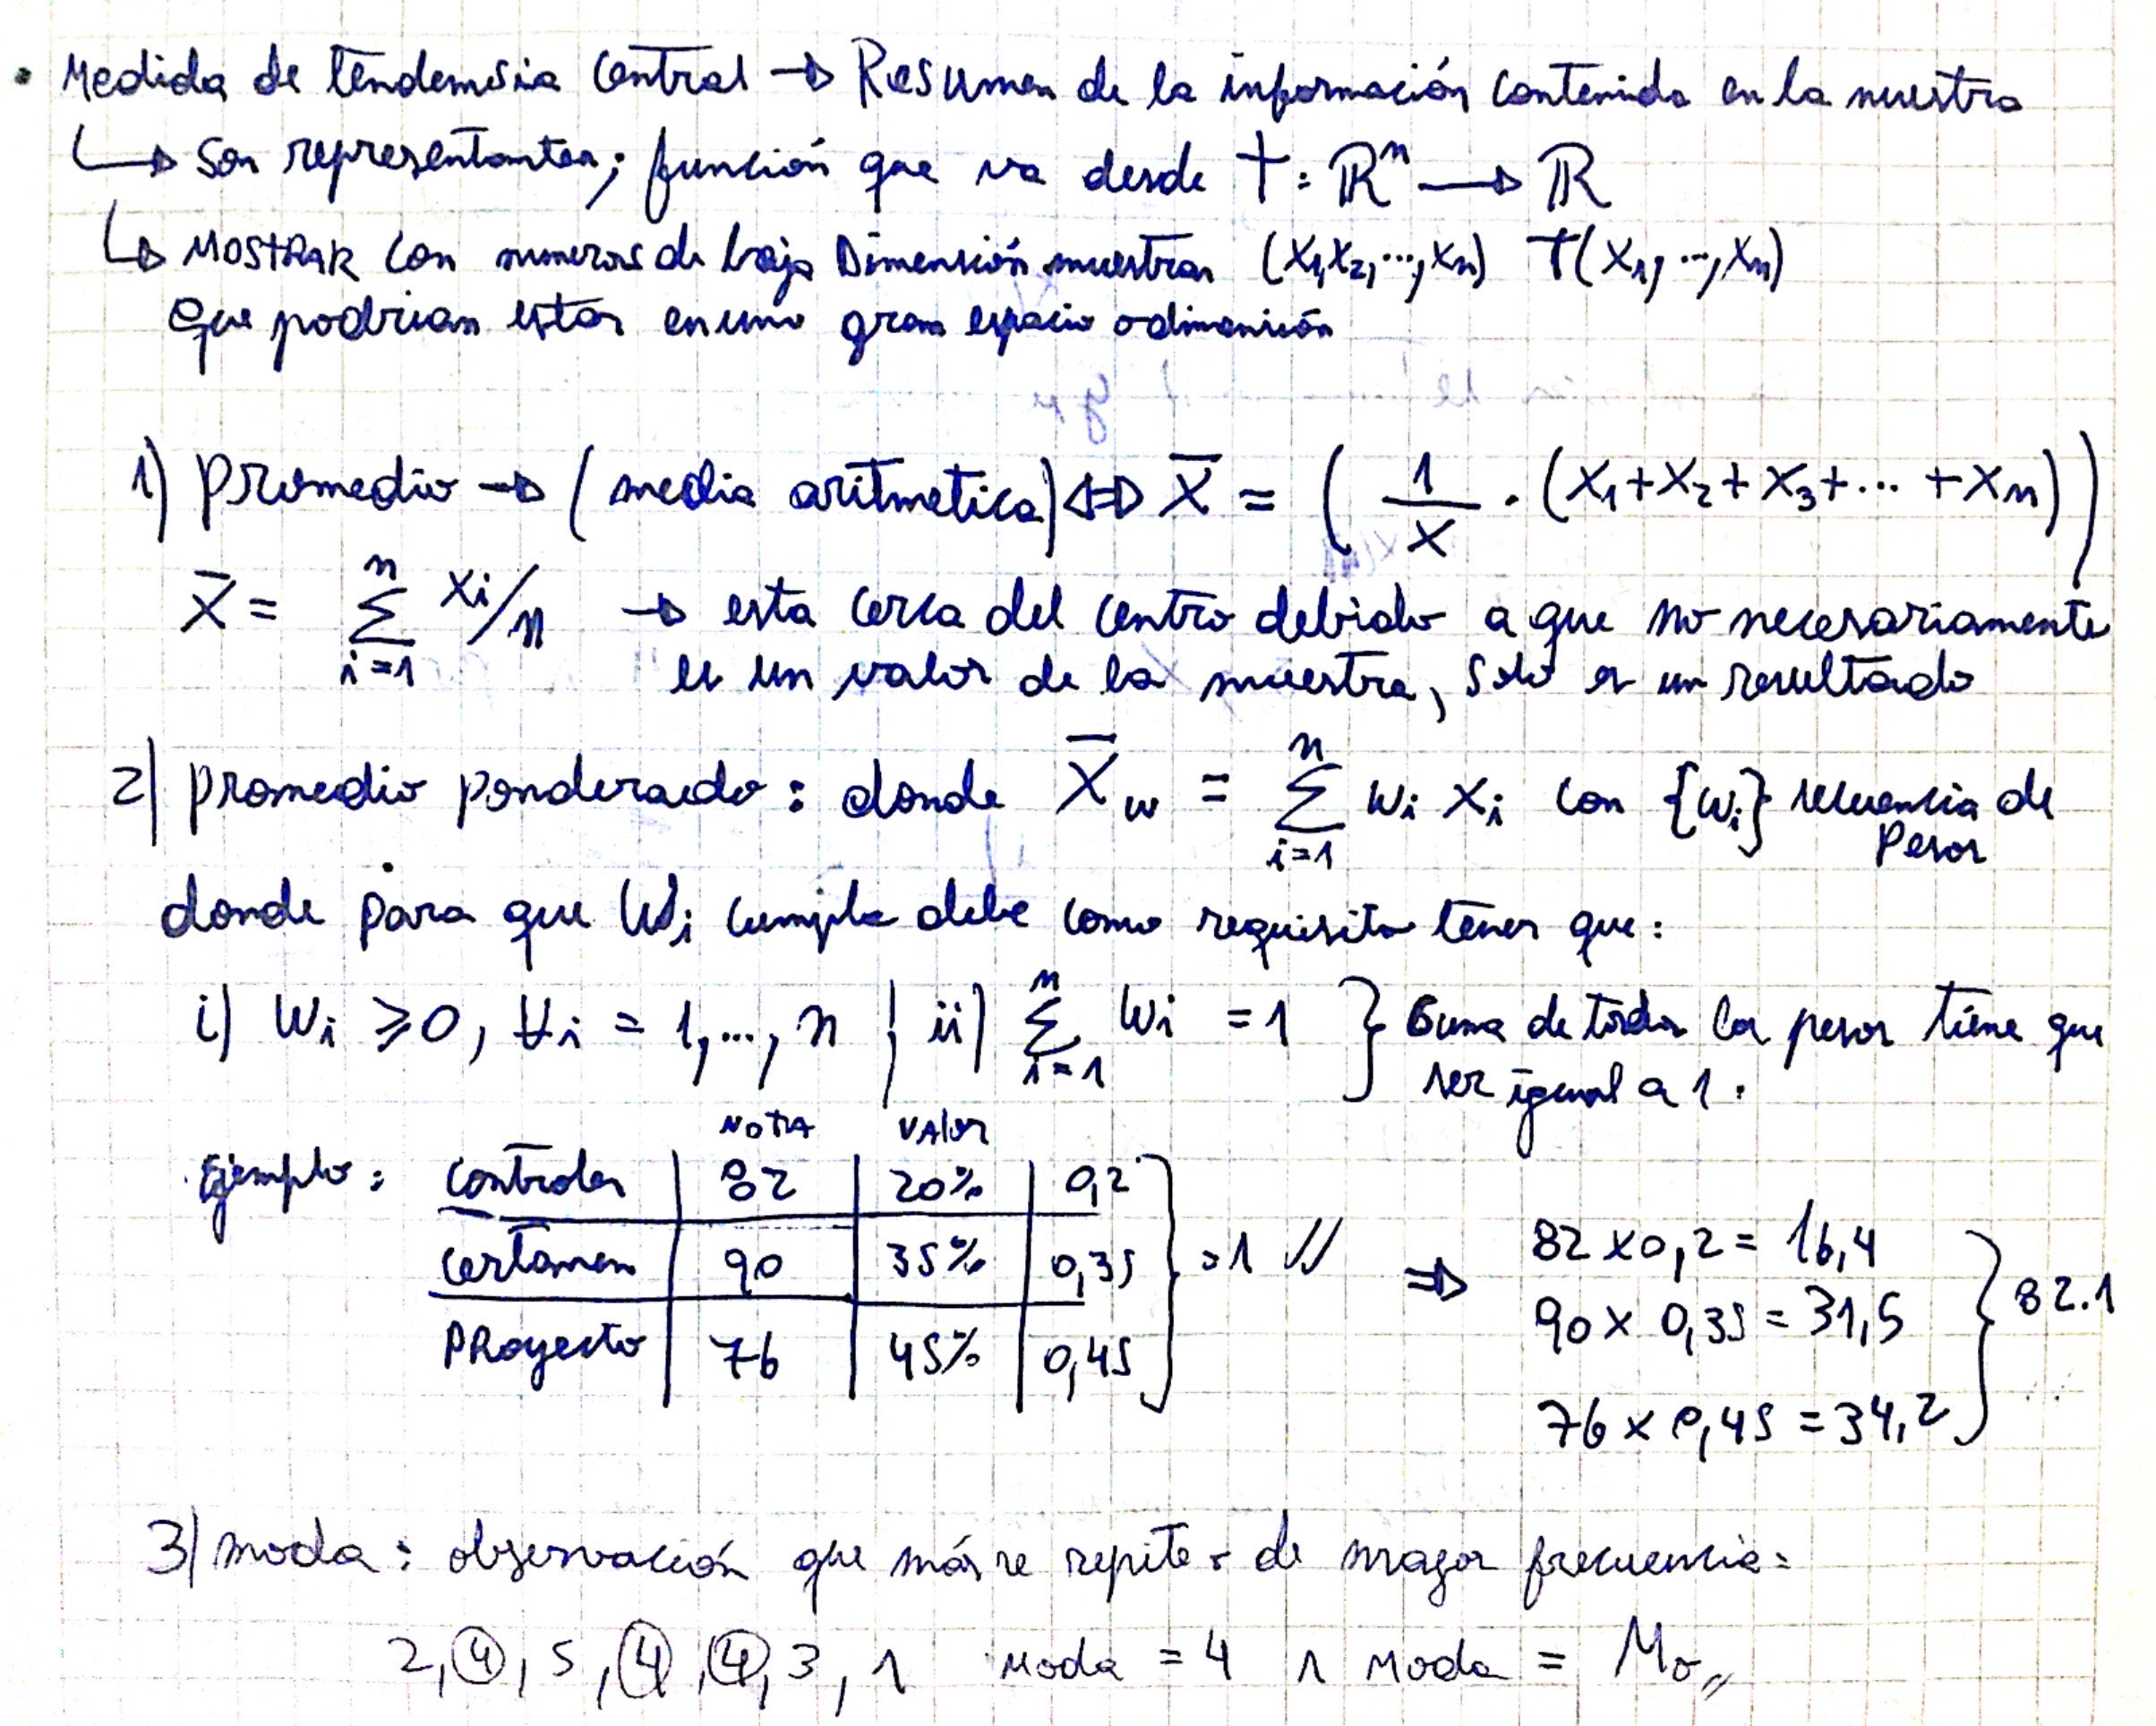 • Medida de tendensia Central → Resumen de la información contenida en la muestra
↳ Son representantes; función que va desde T: ℝⁿ → ℝ
↳ MOSTRAR Con numeros de baja Dimensión muestras (X₁,X₂,...,Xₙ) T(X₁,...,Xₙ)
que podrian estar en una gran espacio o dimensión
1) Promedio → (media aritmetica) ⇔ X̄ = ( 1/X · (X₁+X₂+X₃+...+Xₙ))
X̄ = Σ_{i=1}^{n} Xi/n → esta cerca del centro debido a que no necesariamente
es un valor de la muestra, solo es un resultado
2) Promedio ponderado: donde X̄w = Σ_{i=1}^{n} wi xi con {wi} secuencia de
pesos
donde para que Wi cumpla debe como requisito tener que:
i) Wi ≥ 0, ∀i = 1,...,n | ii) Σ_{i=1}^{n} Wi = 1 } Suma de todos los pesos tiene que
ser igual a 1.
NOTA VALOR
Ejemplo: Controles | 82 | 20% | 0,2
Certamen | 90 | 35% | 0,35 } = 1 // ⇒ 82 x 0,2 = 16,4
90 x 0,35 = 31,5 } 82.1
Proyecto | 76 | 45% | 0,45
76 x 0,45 = 34,2
3) moda: observación que más se repite o de mayor frecuencia:
2, 4, 5, 4, 4, 3, 1 Moda = 4 ∧ Moda = Mo,,